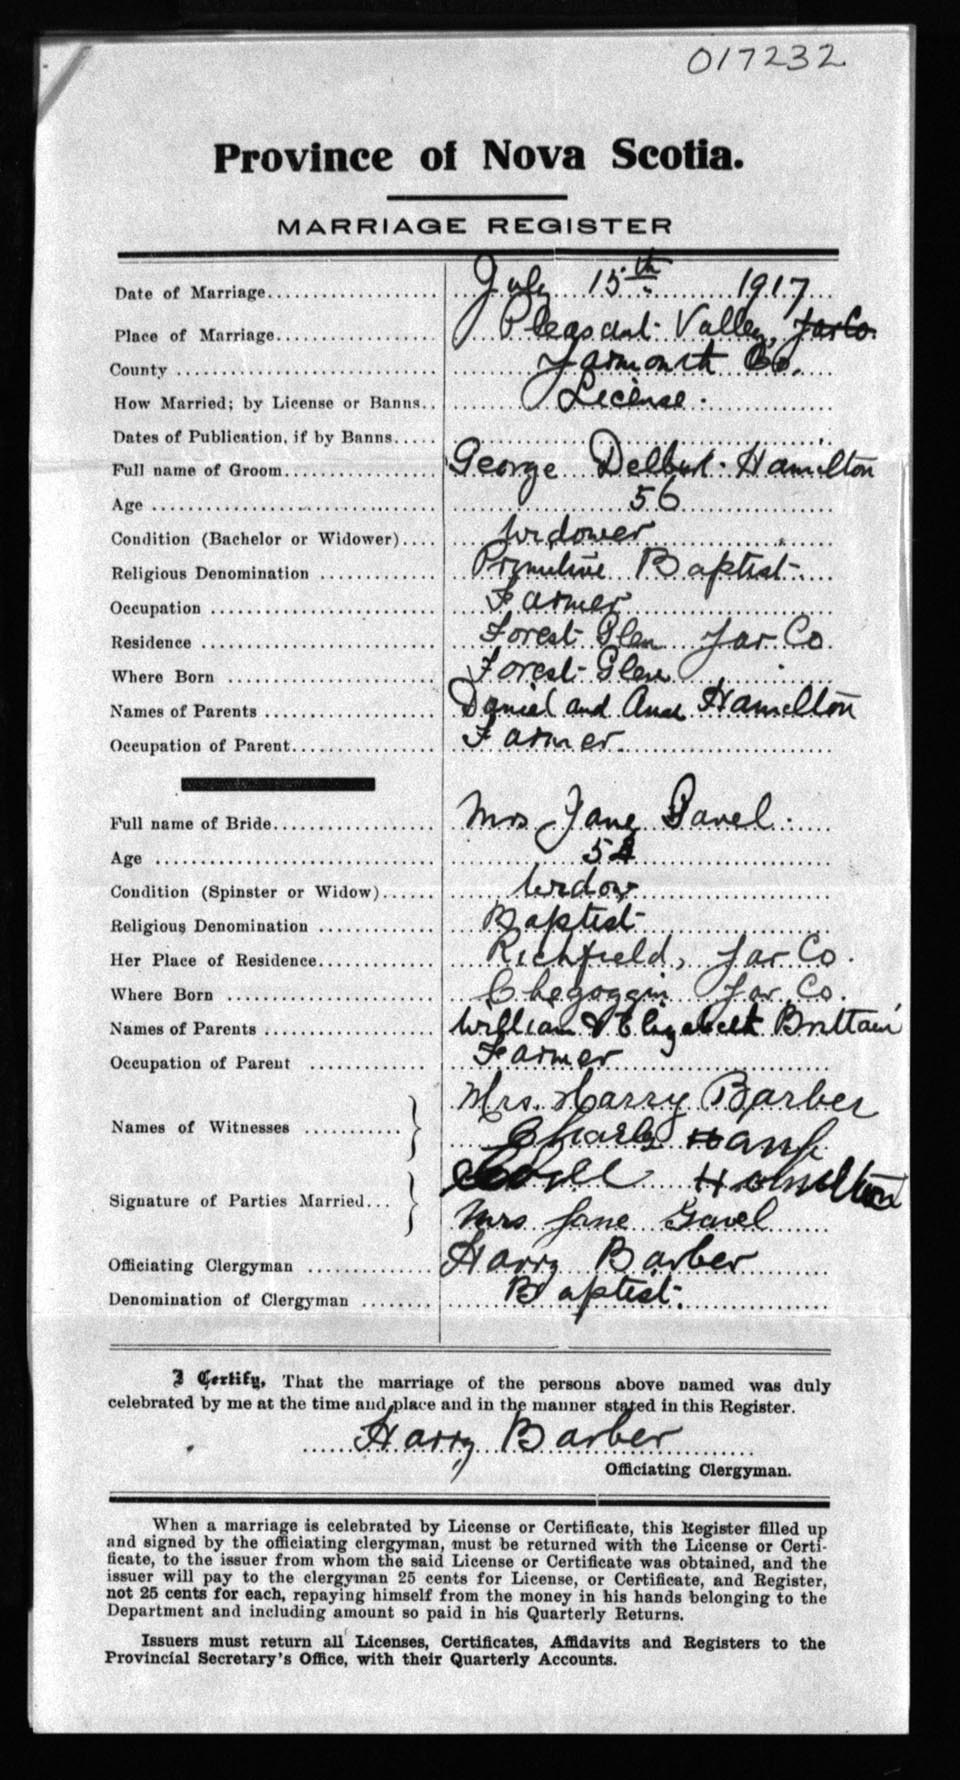 017232
Province of Nova Scotia.
MARRIAGE REGISTER
Date of Marriage.................... July 15th 1917
Place of Marriage................... Pleasant Valley, Yar Co.
County .............................. Yarmouth Co.
How Married; by License or Banns.. License.
Dates of Publication, if by Banns.....
Full name of Groom.................. George Delbert Hamilton
Age ................................. 56
Condition (Bachelor or Widower).... Widower
Religious Denomination ............. Primitive Baptist.
Occupation .......................... Farmer
Residence ........................... Forest Glen Yar Co.
Where Born .......................... Forest Glen
Names of Parents .................... Daniel and Ann Hamilton
Occupation of Parent................. Farmer.
Full name of Bride................... Mrs Jane Gavel.
Age .................................
Condition (Spinster or Widow)...... Widow
Religious Denomination ............. Baptist
Her Place of Residence.............. Richfield, Yar Co.
Where Born .......................... Chegoggin Yar. Co.
Names of Parents .................... William & Elizabeth Brittain
Occupation of Parent ............... Farmer
Names of Witnesses ........... Mrs. Harry Barber
Charles
Signature of Parties Married... Hamilton
Mrs Jane Gavel
Officiating Clergyman .............. Harry Barber
Denomination of Clergyman ........ Baptist.
I Certify, That the marriage of the persons above named was duly
celebrated by me at the time and place and in the manner stated in this Register.
Harry Barber
Officiating Clergyman.
When a marriage is celebrated by License or Certificate, this Register filled up
and signed by the officiating clergyman, must be returned with the License or Certi-
ficate, to the issuer from whom the said License or Certificate was obtained, and the
issuer will pay to the clergyman 25 cents for License, or Certificate, and Register,
not 25 cents for each, repaying himself from the money in his hands belonging to the
Department and including amount so paid in his Quarterly Returns.
Issuers must return all Licenses, Certificates, Affidavits and Registers to the
Provincial Secretary's Office, with their Quarterly Accounts.